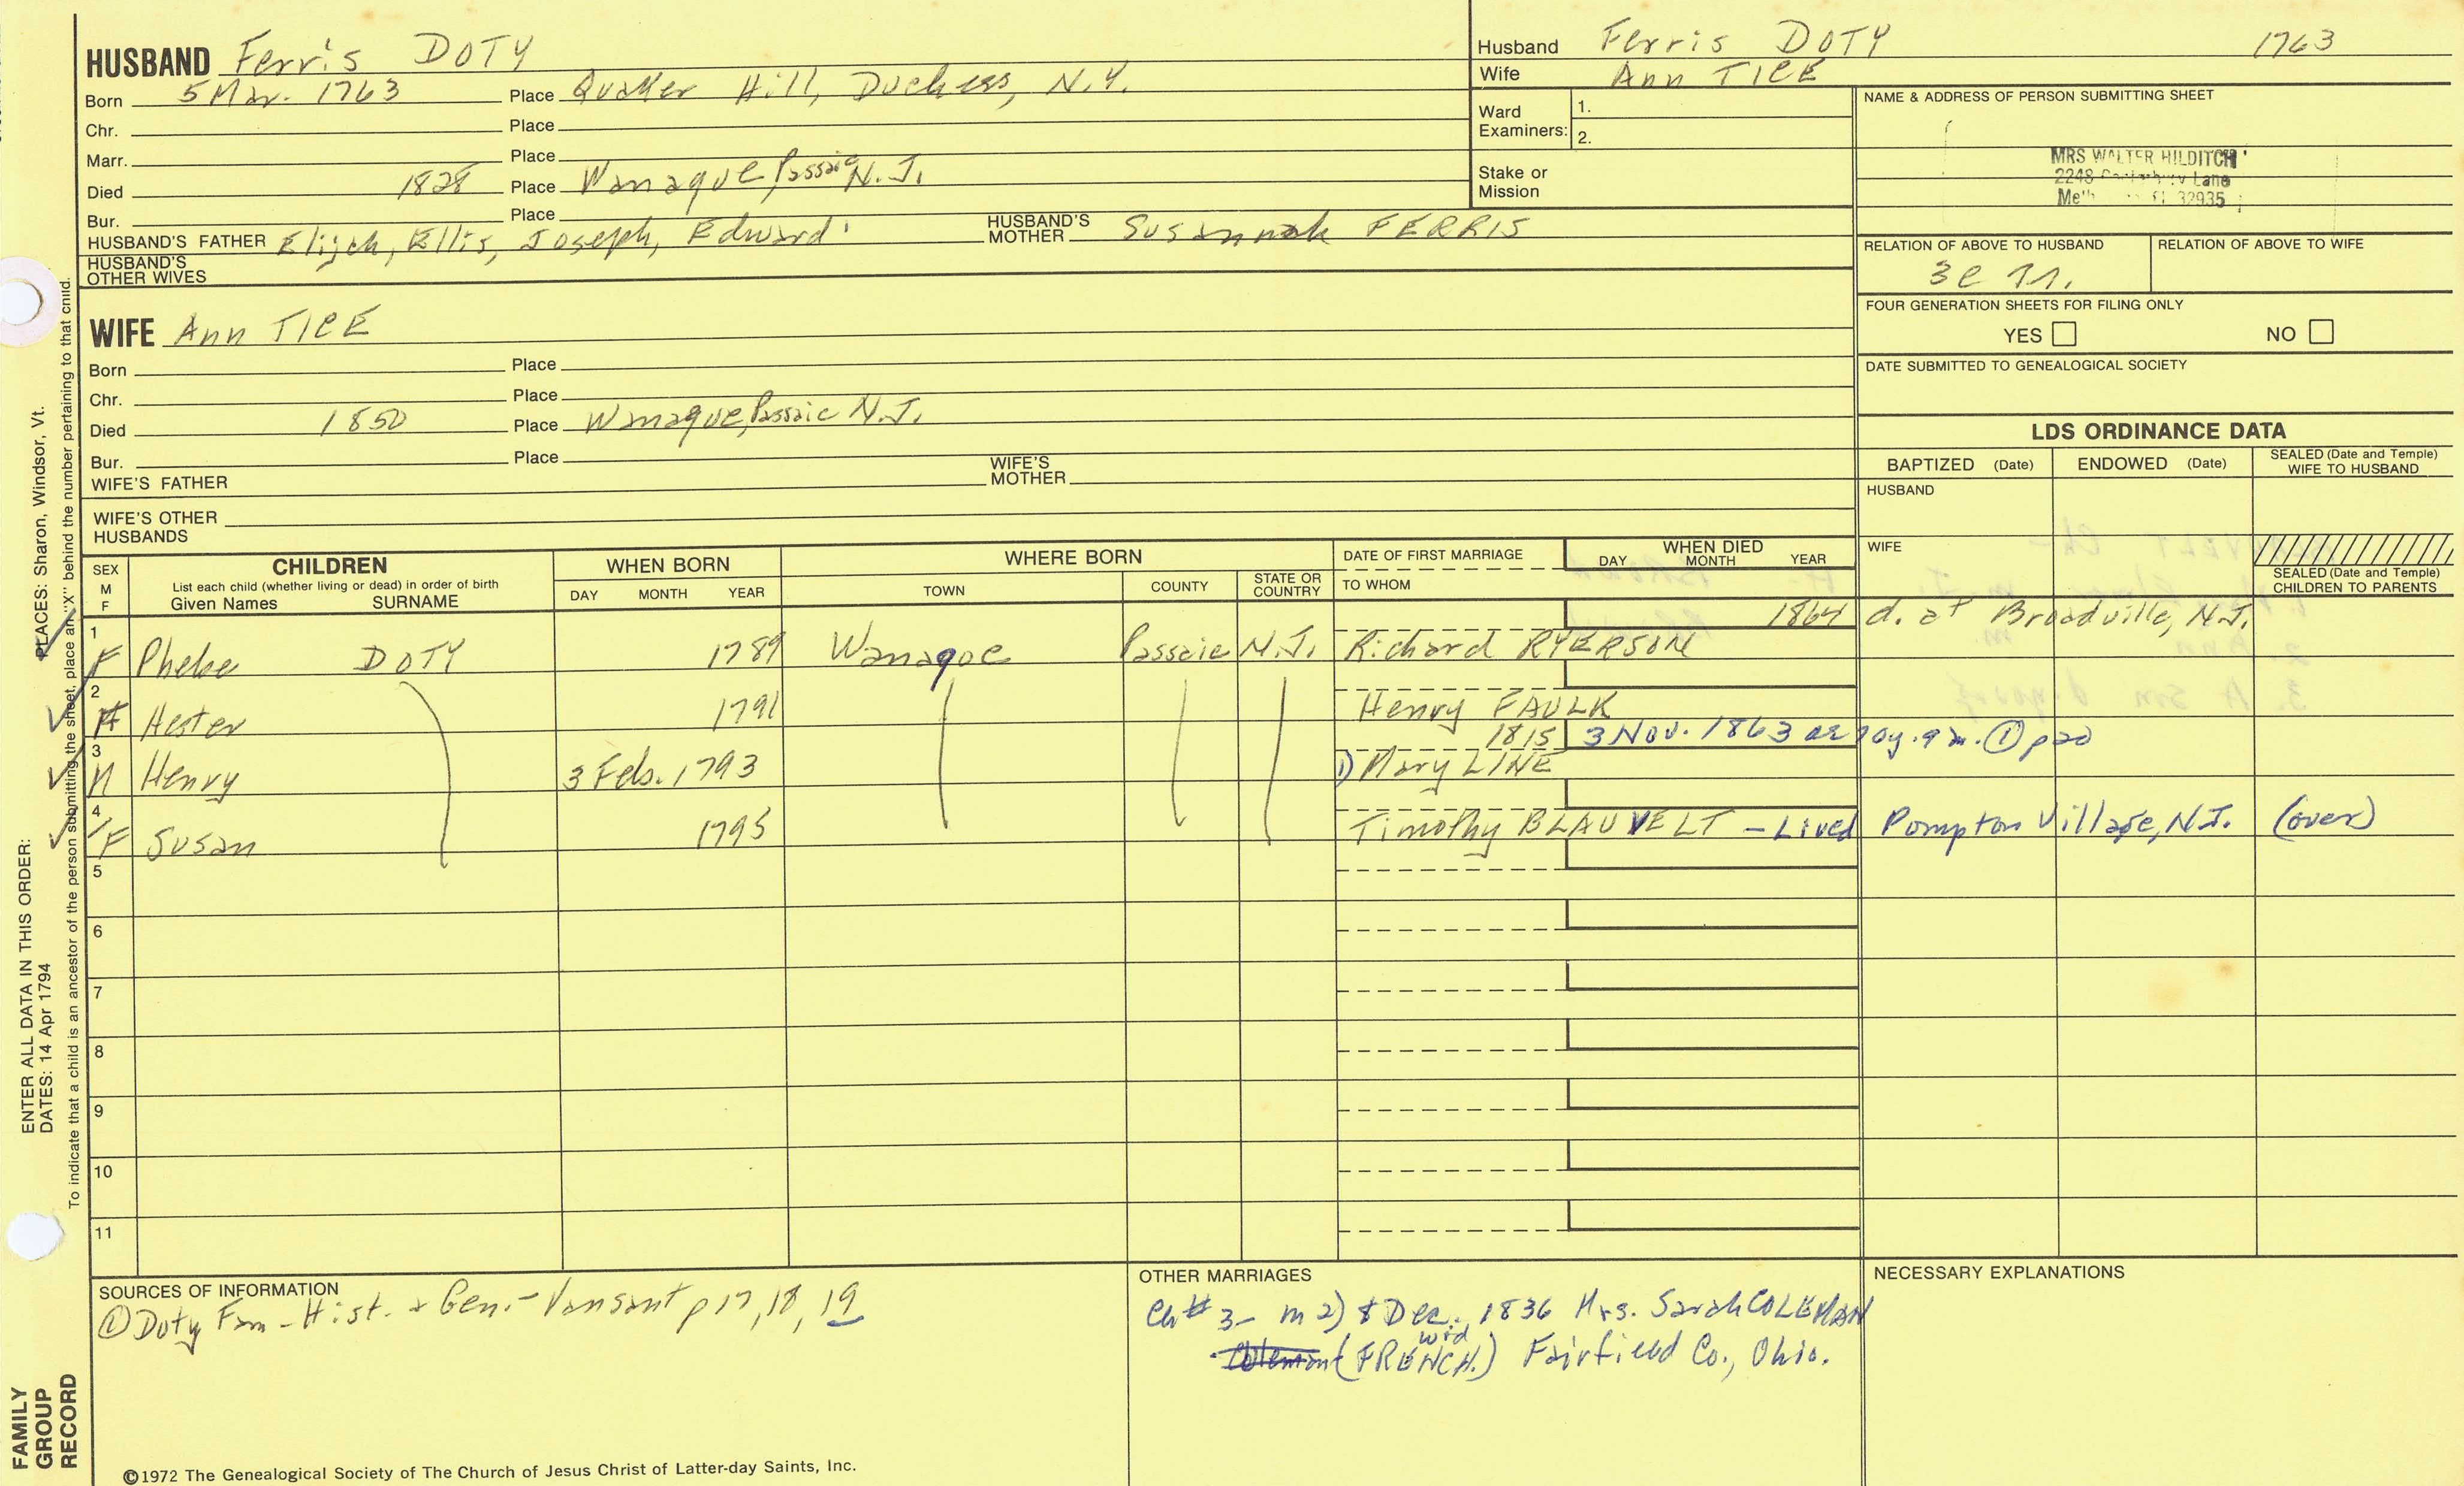 HUSBAND Ferris DOTY
Born 5 Mar. 1763 Place Quaker Hill, Duchess, N.Y.
Chr. Place
Marr. Place
Died 1828 Place Wanaque, Passaic N.J.
Bur. Place
HUSBAND'S FATHER Elijah, Ellis, Joseph, Edward HUSBAND'S MOTHER Susannah FERRIS
HUSBAND'S OTHER WIVES
Husband Ferris DOTY 1763
Wife Ann TICE
Ward Examiners: 1.
2.
Stake or Mission
NAME & ADDRESS OF PERSON SUBMITTING SHEET
MRS WALTER HILDITCH
2248 Lane
32935
RELATION OF ABOVE TO HUSBAND RELATION OF ABOVE TO WIFE
FOUR GENERATION SHEETS FOR FILING ONLY
YES NO
DATE SUBMITTED TO GENEALOGICAL SOCIETY
WIFE Ann TICE
Born Place
Chr. Place
Died 1850 Place Wanaque, Passaic N.J.
Bur. Place
WIFE'S FATHER WIFE'S MOTHER
WIFE'S OTHER HUSBANDS
LDS ORDINANCE DATA
BAPTIZED (Date) ENDOWED (Date) SEALED (Date and Temple) WIFE TO HUSBAND
HUSBAND
WIFE
SEALED (Date and Temple) CHILDREN TO PARENTS
SEX M F CHILDREN WHEN BORN WHERE BORN DATE OF FIRST MARRIAGE WHEN DIED
List each child (whether living or dead) in order of birth
Given Names SURNAME DAY MONTH YEAR TOWN COUNTY STATE OR COUNTRY TO WHOM DAY MONTH YEAR
1864 d. at Broadville, N.J.
1 F Phebe DOTY 1789 Wanaque Passaic N.J. Richard RYERSON
2 F Hester 1791 Henry FAULK
1815 3 Nov. 1863 ae 70y. 9 m. ① p20
3 M Henry 3 Feb. 1793 1) Mary LINE
4 F Susan 1795 Timothy BLAUVELT - Lived Pompton Village, N.J. (over)
5
6
7
8
9
10
11
SOURCES OF INFORMATION
① Doty Fam - Hist. + Gen. - Vansant p 17, 18, 19
OTHER MARRIAGES
Ch # 3 - m 2) 8 Dec. 1836 Mrs. Sarah COLEMAN
Coleman (FRENCH.) wid Fairfield Co., Ohio.
NECESSARY EXPLANATIONS
©1972 The Genealogical Society of The Church of Jesus Christ of Latter-day Saints, Inc.
ENTER ALL DATA IN THIS ORDER:
DATES: 14 Apr 1794 PLACES: Sharon, Windsor, Vt.
To indicate that a child is an ancestor of the person submitting the sheet, place an "X" behind the number pertaining to that child.
FAMILY GROUP RECORD